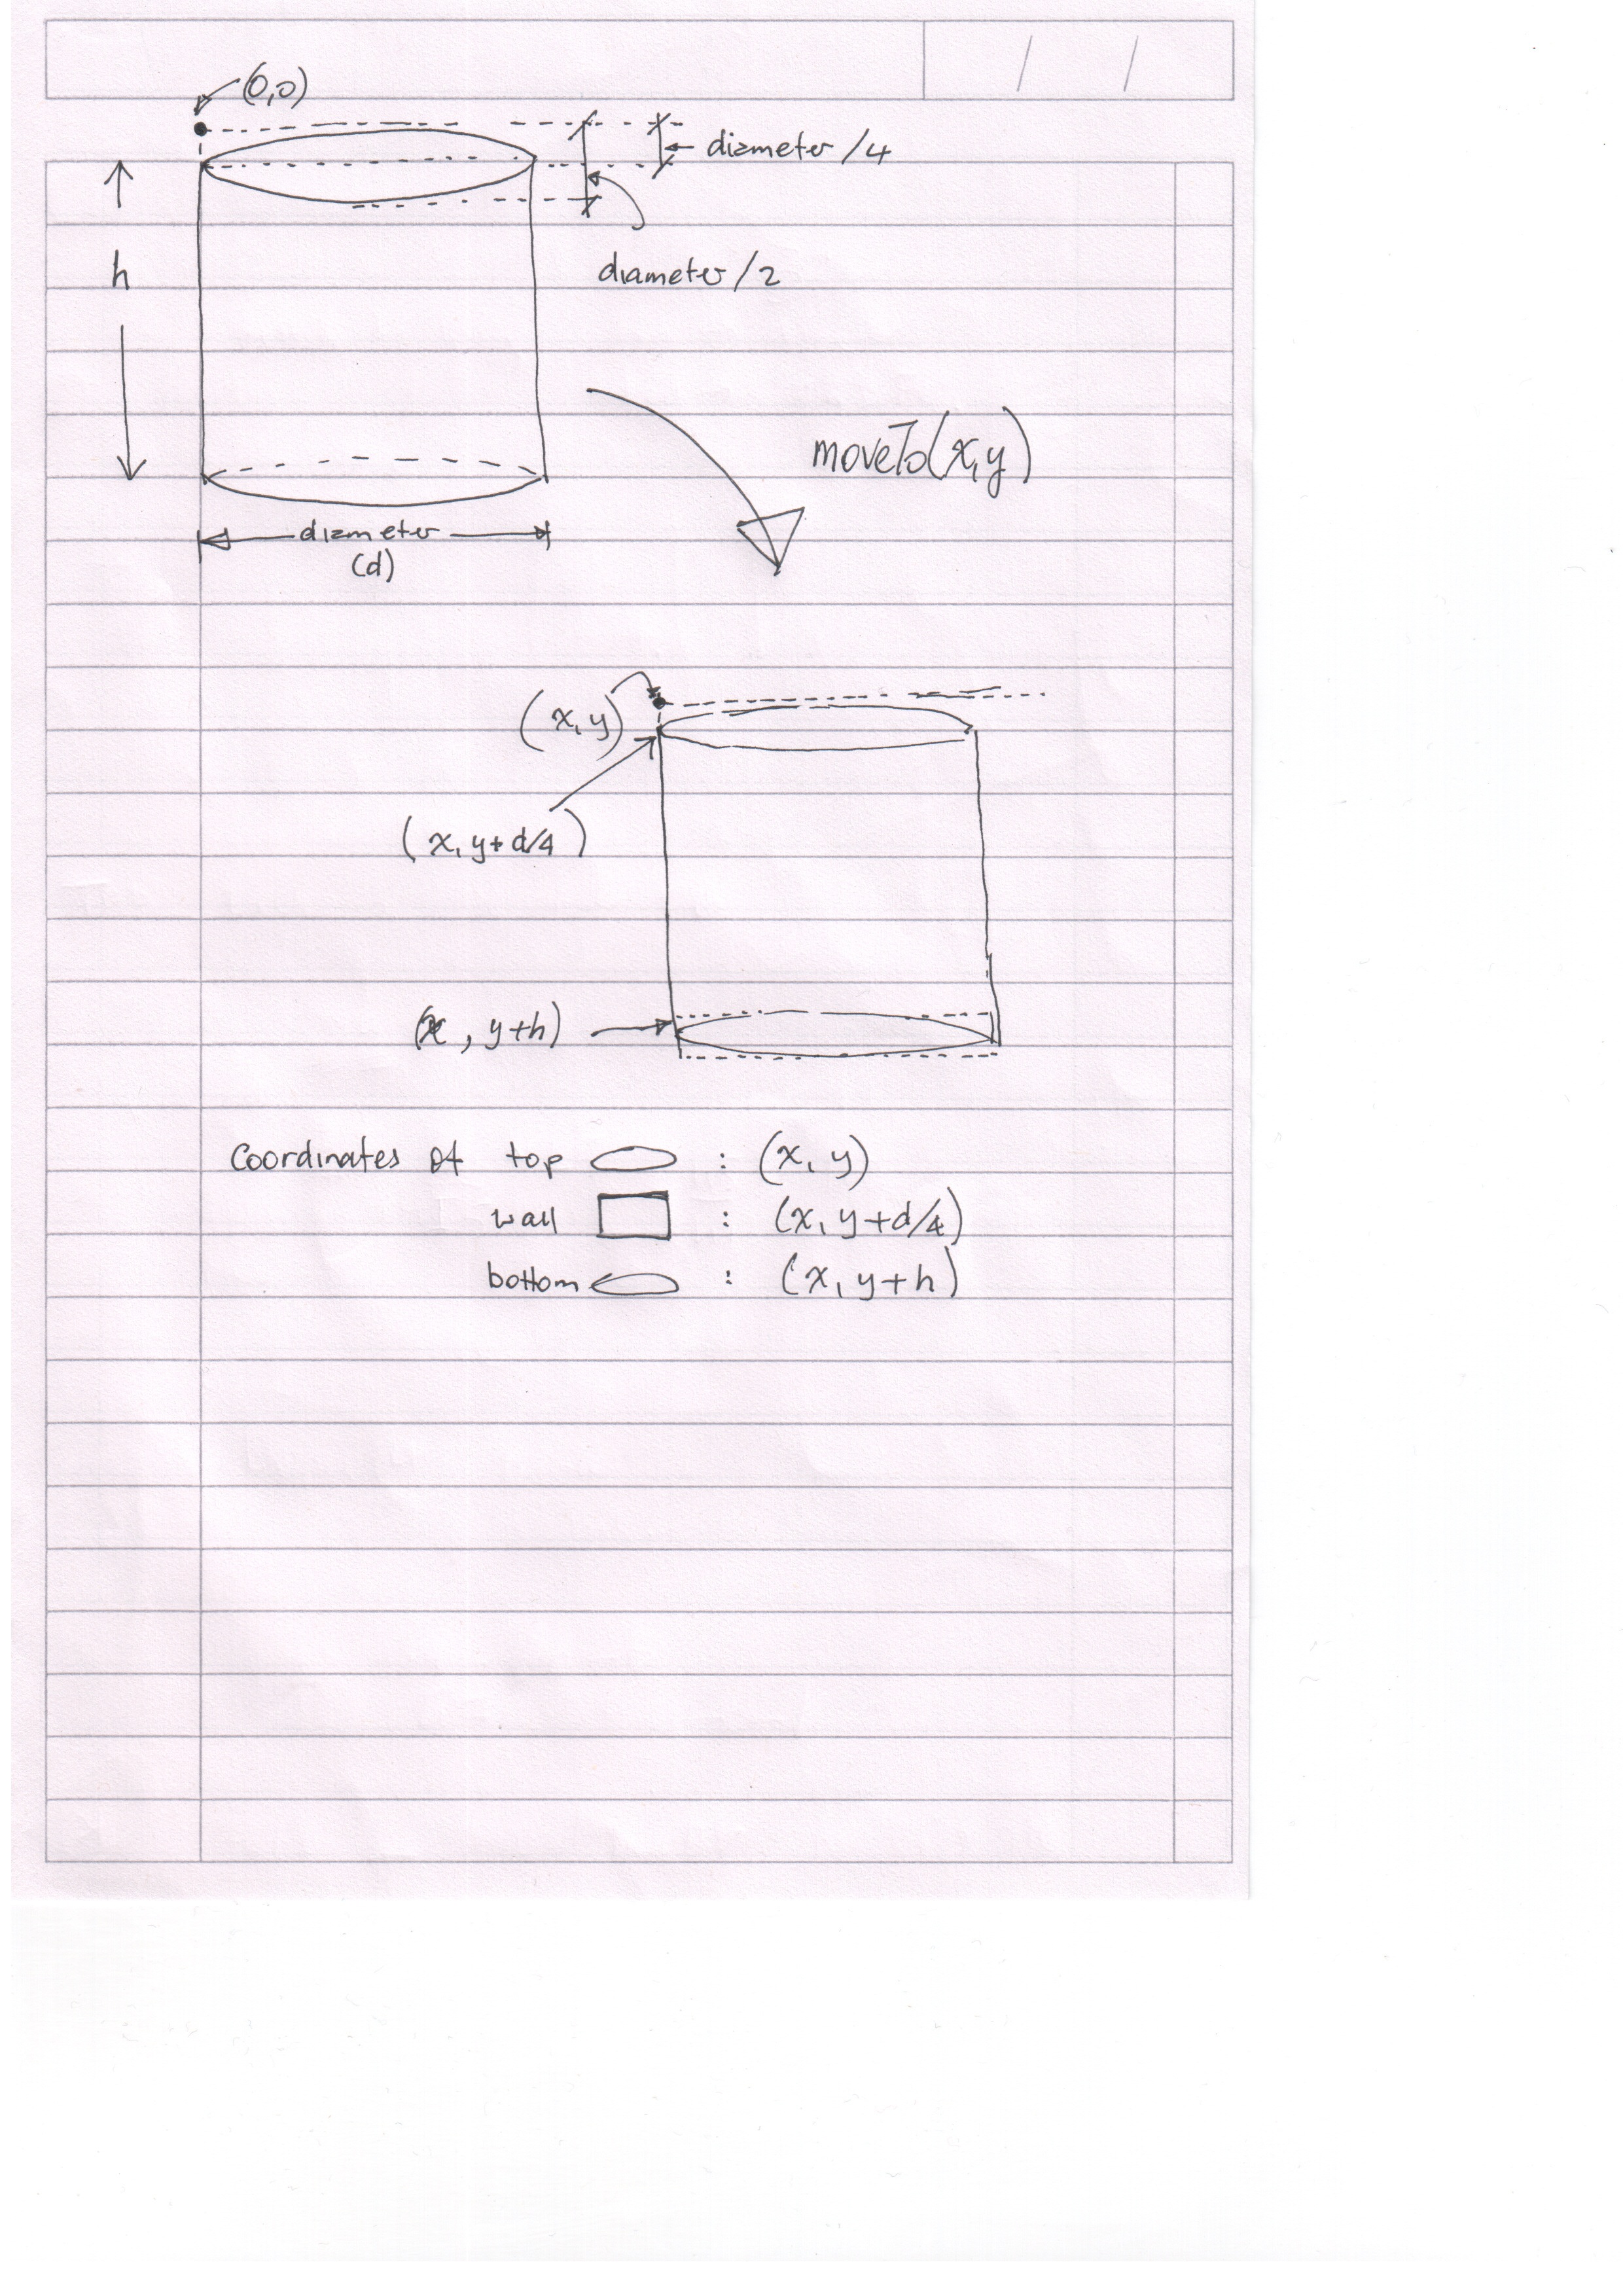 (0,0)
diameter /4
h
diameter /2
moveTo(x,y)
diameter
(d)
(x, y)
(x, y+d/4)
(x, y+h)
Coordinates of top : (x, y)
wall : (x, y+d/4)
bottom : (x, y+h)